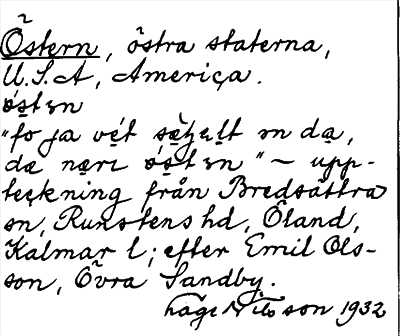 Östern, östra staterna,
U.S.A, America.
ɷ́stɜn
"fo ja vét sæʒɜlt ɜn da,
dæ nærɩ ɷ́stɜn" ~ upp-
teckning från Bredsättra
sn, Runstens hd, Öland,
Kalmar l; efter Emil Ols-
son, Övra Sandby.
Nilsson 1932